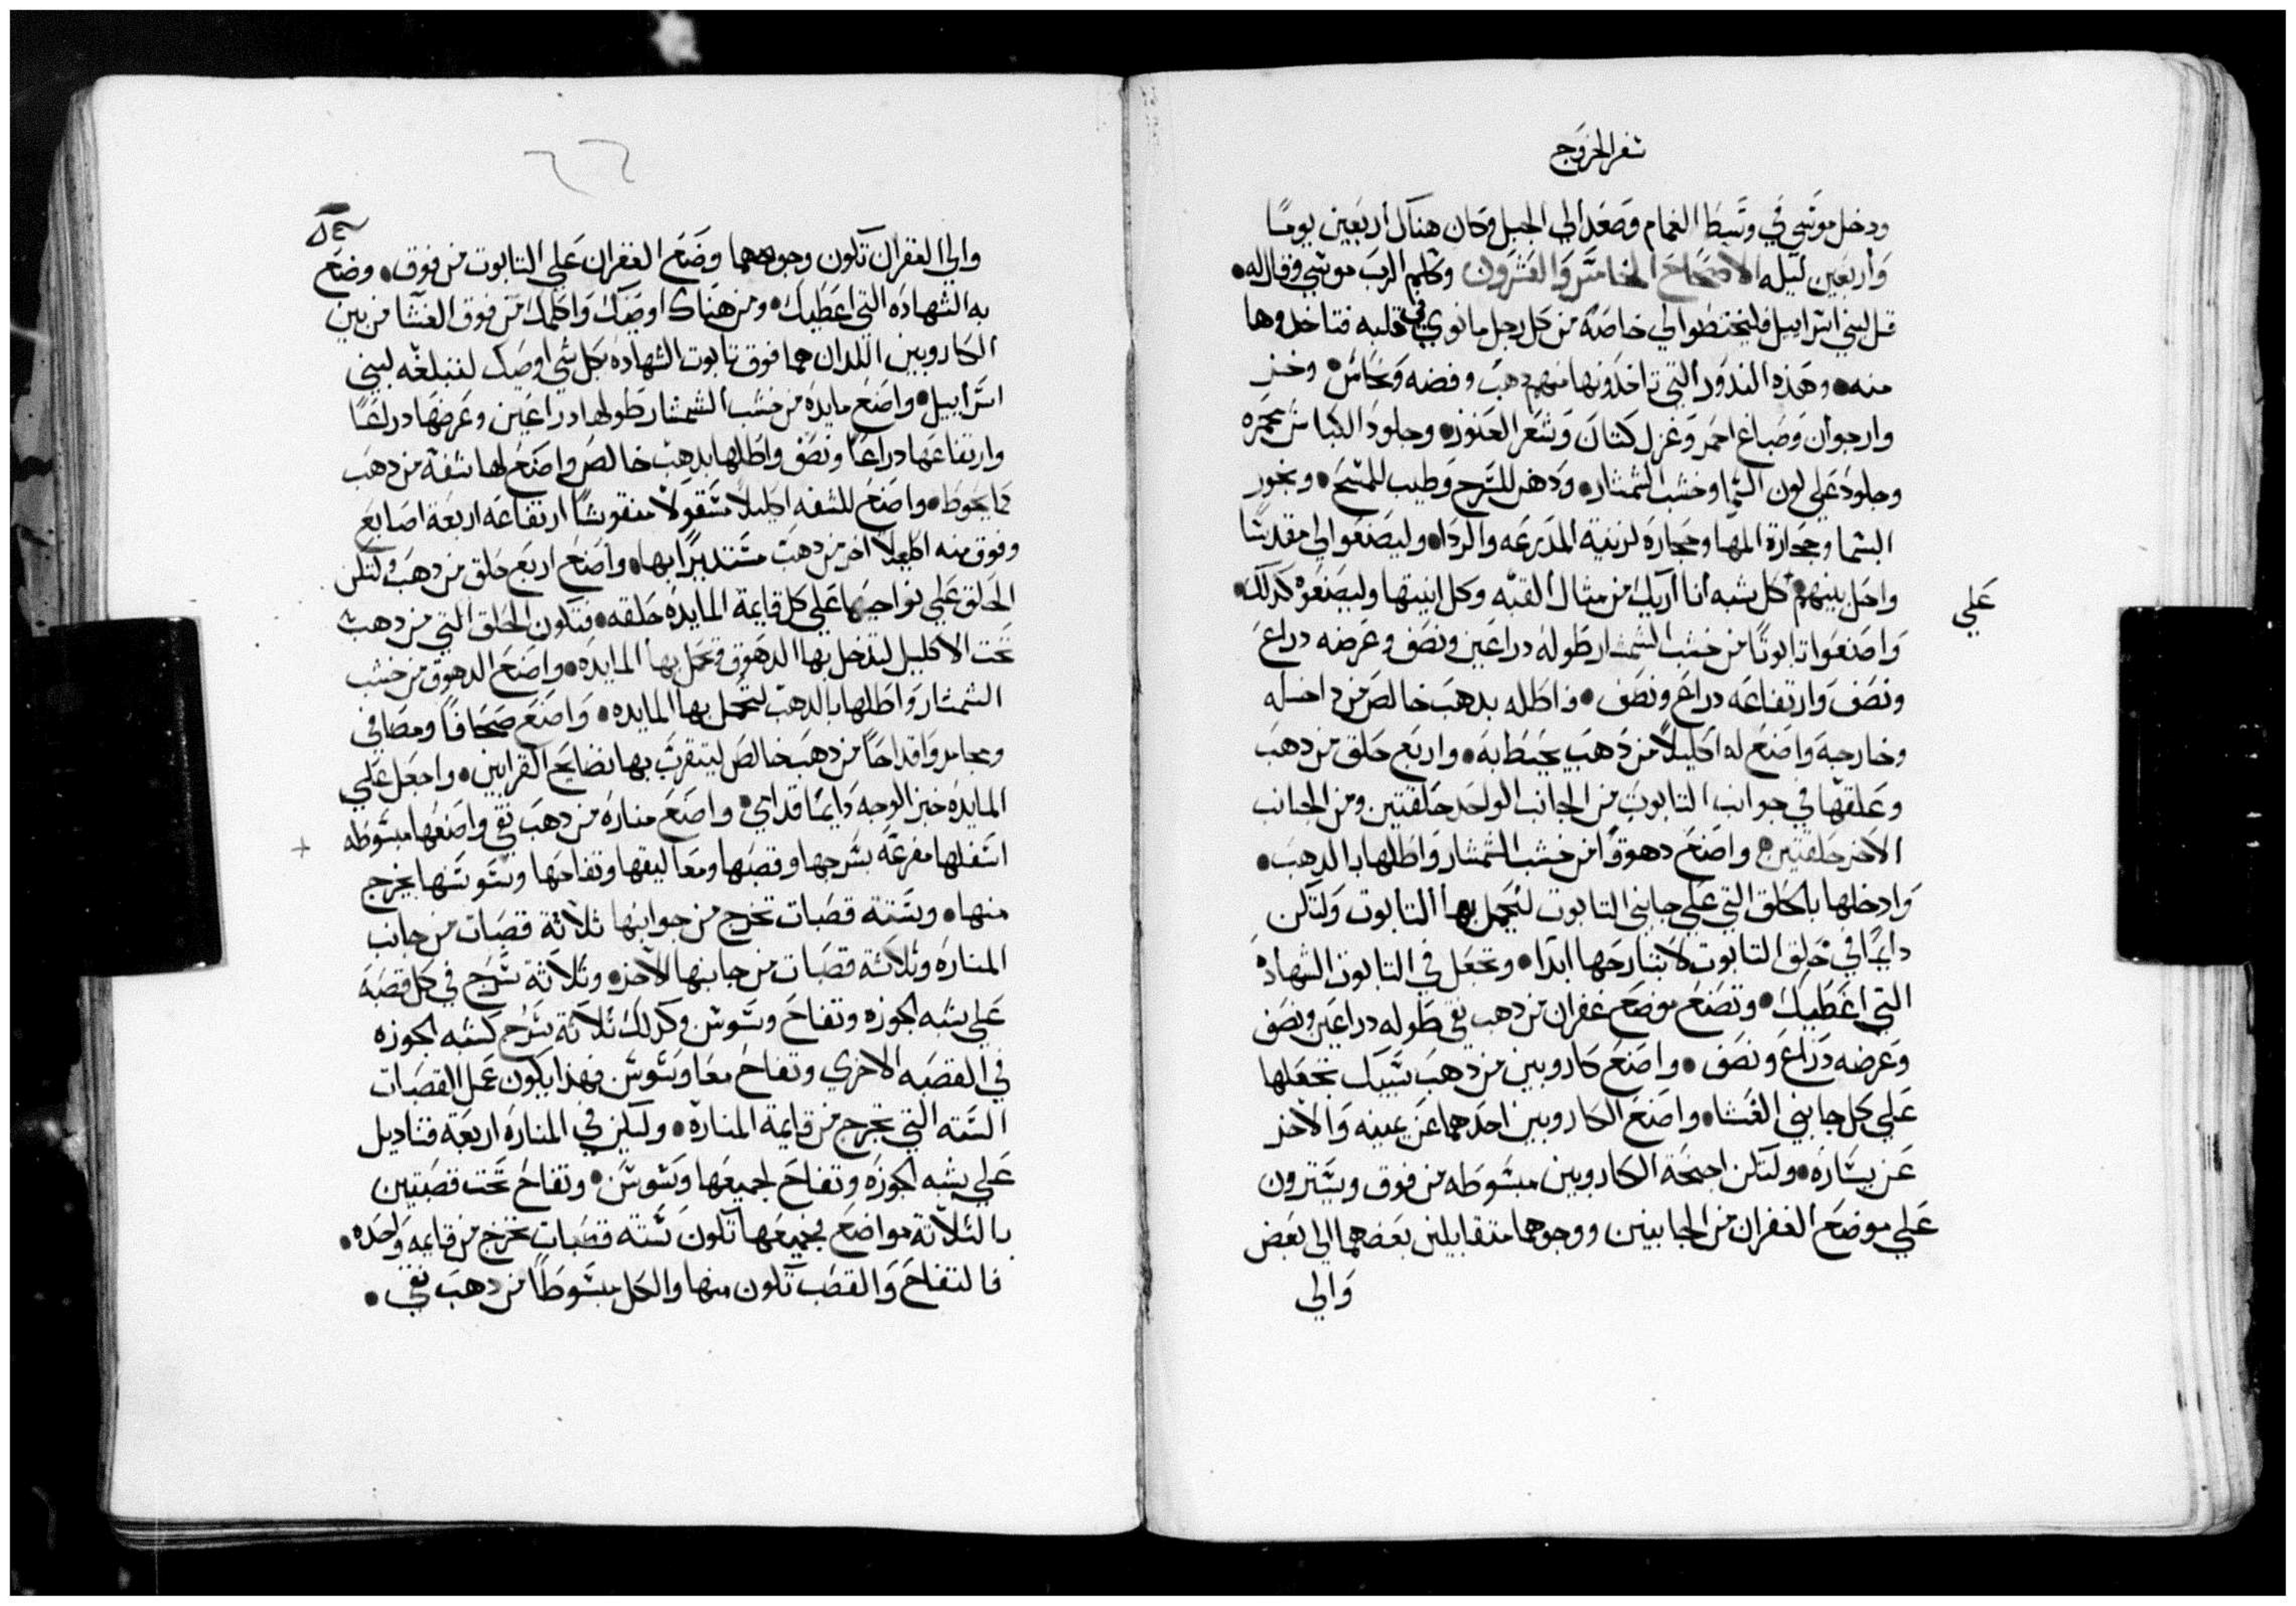 سفر الخروج
ودخل موسي في وسط الغمام وصعد الي الجبل وكان هناك اربعين يومًا
واربعين ليله الاصحاح الخامس والعشرون وكلم الرب موسي وقال له •
قل لبني اسراييل فليختطوا لي خاصه من كل رجل ما نوي في قلبه فتاخدوها
منه • وهذه الندور التي تاخدونها منهم دهب وفضه ونحاس • وخز
وارجوان وصباغ احمر وغزل كتان وشعر العنوز • وجلود الكباش محمره
وجلود علي لون السما وخشب الشمشار • ودهن للسرج وطيب للمسح • وبخور
البشما وحجارة المها وحجاره لزينة المدرعه والردا • وليصنعوا لي مقدسًا
واحل بينهم • كل شبه انا اريك من مثال القبه وكل انيتها وليصنعوه كدلك •
علي
واصنعوا تابوتًا من خشب الشمشار طوله دراعين ونصف وعرضه دراع
ونصف وارتفاعه دراع ونصف • واطله بدهب خالص من داخله
وخارجه واصنع له اكليلًا من دهب يحيط به • واربع حلق من دهب
وعلقها في جوانب التابوت من الجانب الواحد حلقتين ومن الجانب
الاخر حلقتين • واصنع دهوقًا من خشب الشمشار واطلها بالدهب •
وادخلها بالحلق التي علي جانبي التابوت لتحمل بها التابوت ولتكن
دايمًا في حلق التابوت لا تبارحها ابدًا • وتجعل في التابوت الشهاده
التي اعطيك • وتصنع موضع غفران من دهب نقي طوله دراعين ونصف
وعرضه دراع ونصف • واصنع كاروبين من دهب سبيك تجعلها
علي كل جانبي الغشا • واصنع الكاروبين احدهما عن يمينه والاخر
عن يساره • ولتكن اجنحة الكاروبين مبسوطه من فوق ويسترون
علي موضع الغفران من الجانبين ووجوهما متقابلين بعضهما الي بعض
والي
والي الغفران تكون وجوههما وضع الغفران علي التابوت من فوق • وضع
به الشهاده التي اعطيك • ومن هناك اوصيك واكلمك من فوق الغشا من بين
الكاروبين اللدان هما فوق تابوت الشهاده بكل شي اوصيك لتبلغه لبني
اسراييل • واصنع مايده من خشب الشمشار طولها دراعين وعرضها دراعًا
وارتفاعها دراعًا ونصف واطلها بدهب خالص واصنع لها شفة من دهب
كما يحوط • واصنع للشفه اكليلًا مسقولًا منقوشًا ارتفاعه اربعة اصابع
وفوق منه اكليلا اخر من دهب مستديرًا بها • واصنع اربع حلق من دهب ولتكن
الحلق علي نواحيها علي كل قايمة المايده حلقه • فتكون الحلق التي من دهب
تحت الاكليل ليدخل بها الدهوق وتحمل بها المايده • واصنع الدهوق من خشب
الشمشار واطلها بالدهب لتحمل بها المايده • واصنع صحافًا ومصافي
ومجامر واقداحًا من دهب خالص ليتقرب بها نضايح القرابين • واجعل علي
المايده خبز الوجه دايمًا قدامي • واصنع مناره من دهب نقي واصنعها مبسوطه
اسفلها مفرعه بسرجها وقصبها ومعاليقها وتفاحها وسوسنها يخرج
منها • وستة قصبات تخرج من جوانبها ثلاثة قصبات من جانب
المناره وثلاثة قصبات من جانبها الاخر • وثلاثة سرج في كل قصبه
علي شبه الجوزه وتفاح وسوسن وكدلك ثلاثة سرج كشبه الجوزه
في القصبه الاخري وتفاح معًا وسوسن فهذا يكون عمل القصبات
السته التي تخرج من قايمة المناره • وليكن في المناره اربعة قناديل
علي شبه الجوزه وتفاح لجميعها وسوسن • وتفاح تحت قصبتين
بالثلاثة مواضع فجميعها تكون ستة قصبات تخرج من قايمه واحده •
فالتفاح والقصب تكون منها والكل مبسوطًا من دهب نقي •